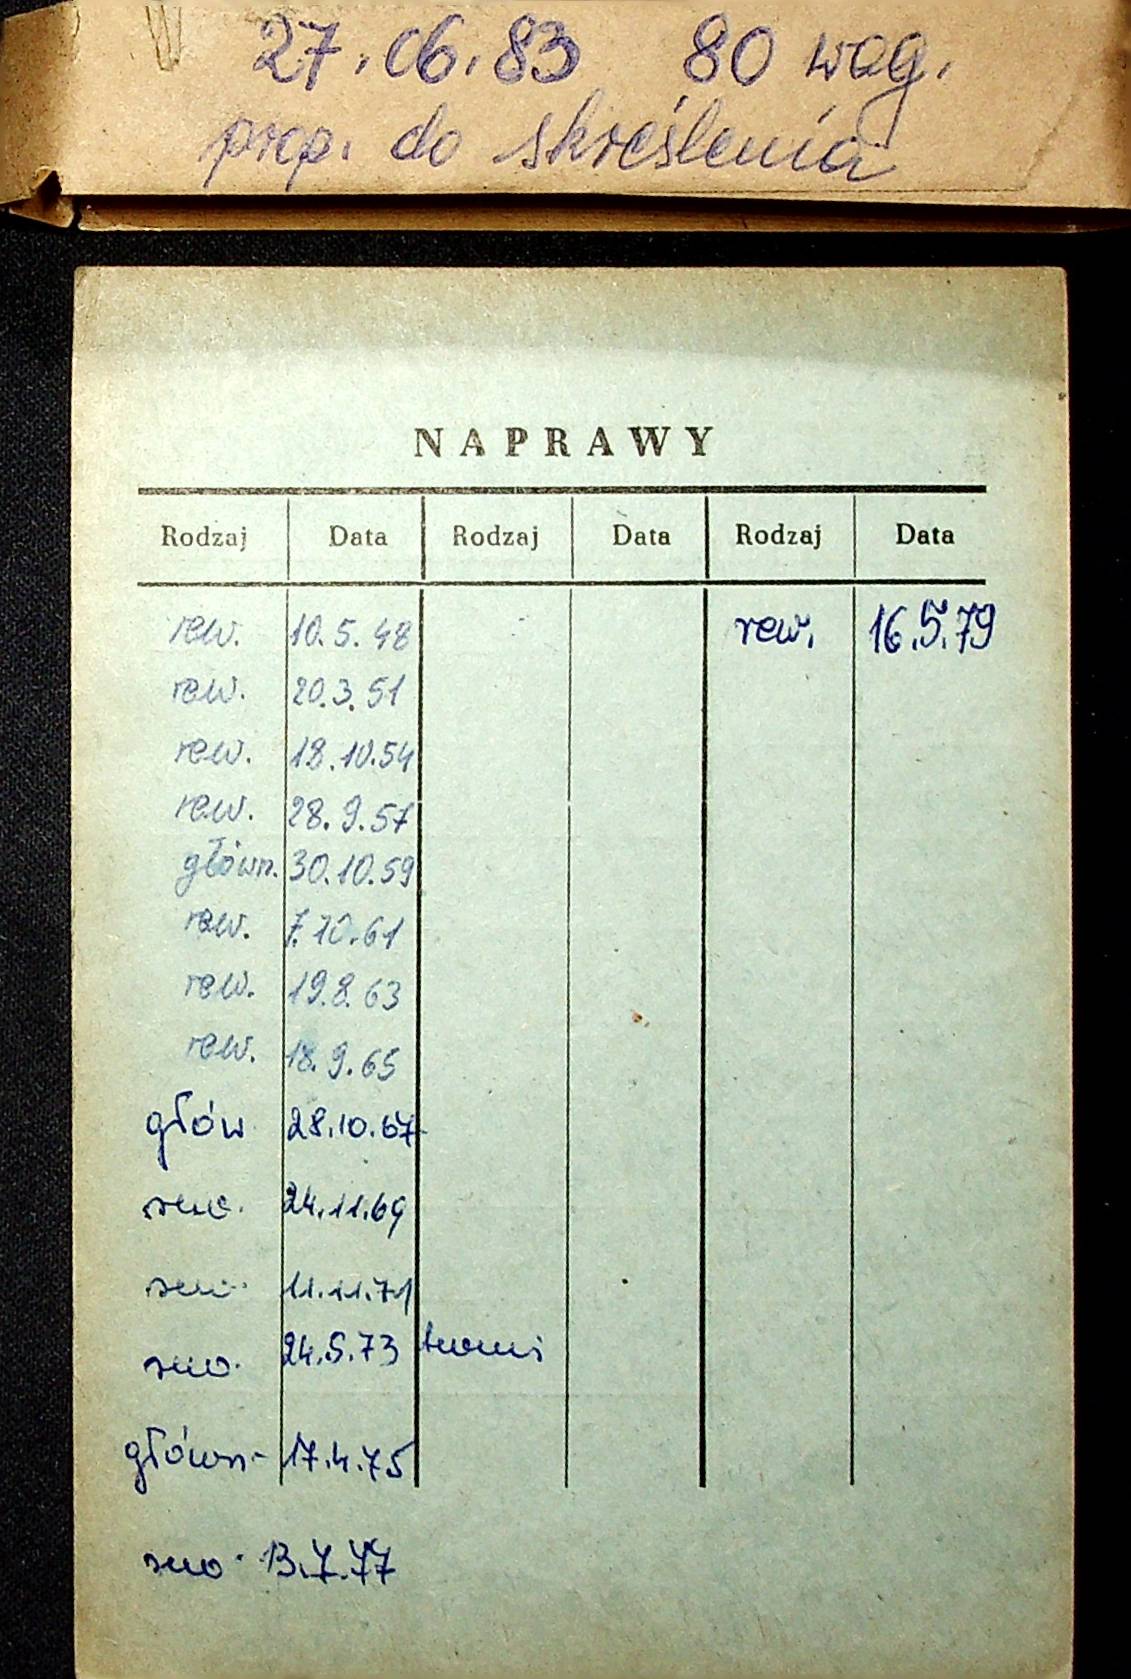 27.06.83 80 wag.
prop. do skreślenia
NAPRAWY
Rodzaj Data Rodzaj Data Rodzaj Data
rew. 10.5.48 rew. 16.5.79
rew. 20.3.51
rew. 18.10.54
rew. 28.9.57
główn. 30.10.59
rew. 7.10.61
rew. 19.8.63
rew. 18.9.65
głów 28.10.67
rew. 24.11.69
rew. 11.11.71
rew. 24.5.73
główn. 17.4.75
rew. 13.7.77